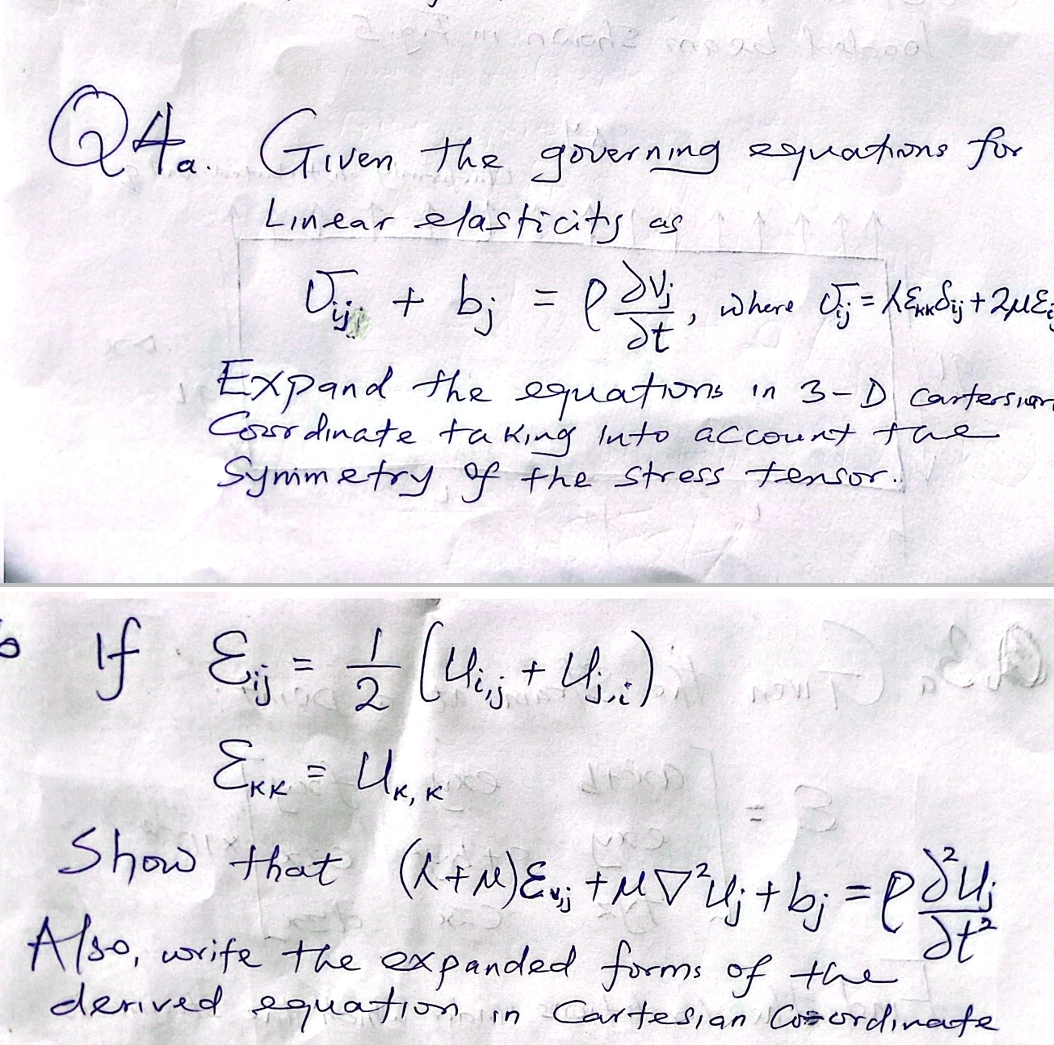 Q4a. Given the governing equations for
Linear elasticity as
σij,i + bj = ρ ∂vj/∂t, where σij = λεkkδij + 2μεi
Expand the equations in 3-D cartersian
Coordinate taking into account the
Symmetry of the stress tensor.
b If εij = 1/2 (ui,j + uj,i)
εkk = uk,k
Show that (λ+μ)εv,j + μ∇²uj + bj = ρ ∂²uj/∂t²
Also, write the expanded forms of the
derived equation in Cartesian Coordinate